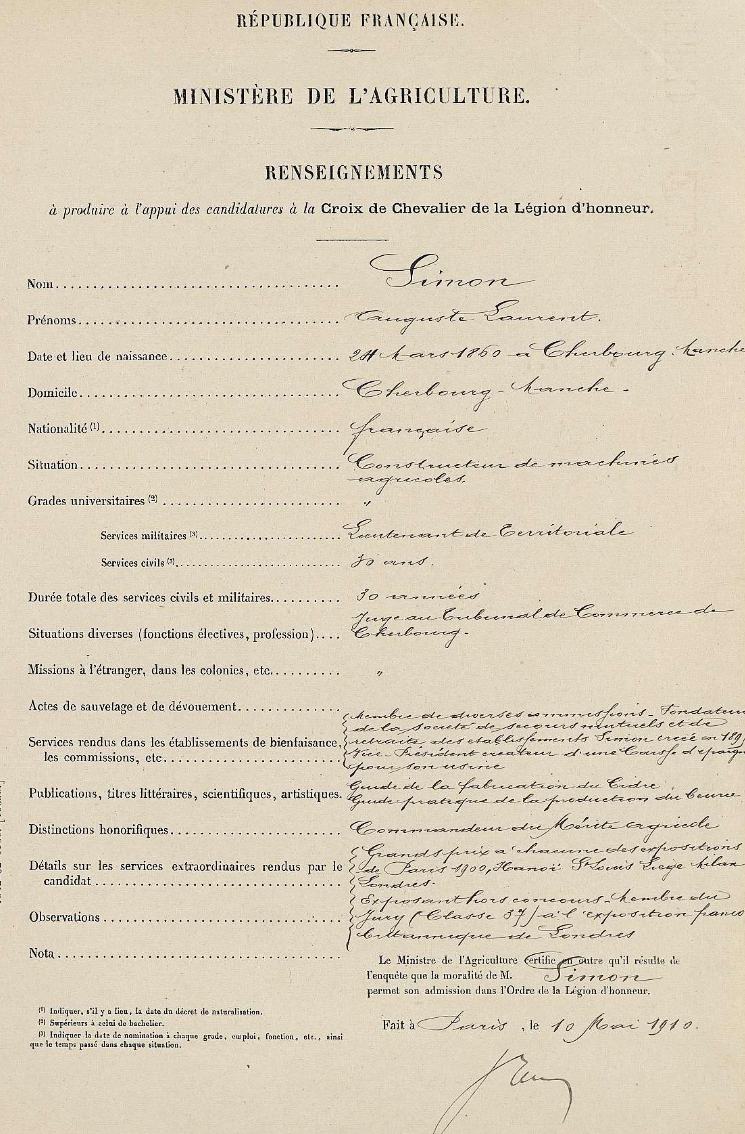 RÉPUBLIQUE FRANÇAISE.
MINISTÈRE DE L'AGRICULTURE.
RENSEIGNEMENTS
à produire à l'appui des candidatures à la Croix de Chevalier de la Légion d'honneur.
Nom. Simon
Prénoms. Auguste Laurent.
Date et lieu de naissance. 24 Mars 1860 à Cherbourg. Manche
Domicile. Cherbourg - Manche -
Nationalité (1). française
Situation. Constructeur de machines
agricoles.
Grades universitaires (2) "
Services militaires (3). Lieutenant de Territoriale
Services civils (3). 30 ans.
Durée totale des services civils et militaires. 30 années
Juge au Tribunal de Commerce de
Situations diverses (fonctions électives, profession). Cherbourg.
Missions à l'étranger, dans les colonies, etc. "
Actes de sauvetage et de dévouement.
Membre de diverses commissions - Fondateur
de la société de secours mutuels et de
Services rendus dans les établissements de bienfaisance, retraite des établissements Simon créée en 189
les commissions, etc. Vice-Président créateur d'une Caisse d'épargne
pour son usine
Guide de la fabrication du Cidre
Publications, titres littéraires, scientifiques, artistiques. Guide pratique de la production du beurre
Distinctions honorifiques. Commandeur du Mérite agricole
Grands prix à chacune des expositions
Détails sur les services extraordinaires rendus par le de Paris 1900, Hanoï St Louis Liège Milan
candidat Londres.
Exposant hors concours - Membre du
Observations Jury (Classe 37) à l'exposition franco
britannique de Londres
Nota.
Le Ministre de l'Agriculture certifie en outre qu'il résulte de
l'enquête que la moralité de M. Simon
permet son admission dans l'Ordre de la Légion d'honneur.
(1) Indiquer, s'il y a lieu, la date du décret de naturalisation.
(2) Supérieurs à celui de bachelier.
(3) Indiquer la date de nomination à chaque grade, emploi, fonction, etc., ainsi
que le temps passé dans chaque situation.
Fait à Paris, le 10 Mai 1910.